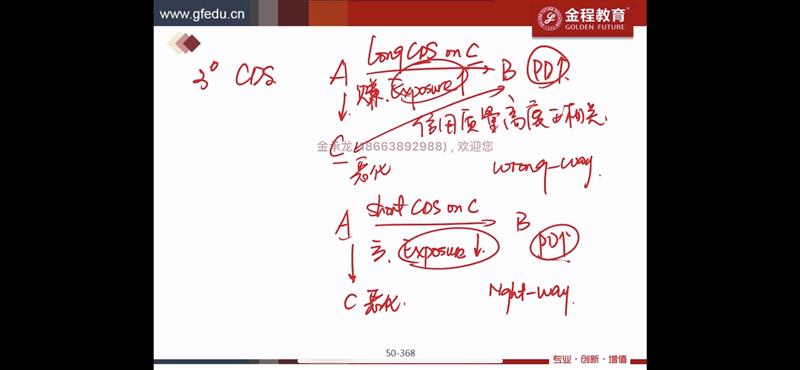 www.gfedu.cn
金程教育®
GOLDEN FUTURE
3° CDS
A Long CDS on C B PD↑
赚. Exposure↑
信用质量高度正相关.
C
金承龙(18663892988) , 欢迎您
恶化 wrong-way.
A short CDS on C B PD↑
亏. Exposure↓
C 恶化. right-way.
50-368
专业·创新·增值